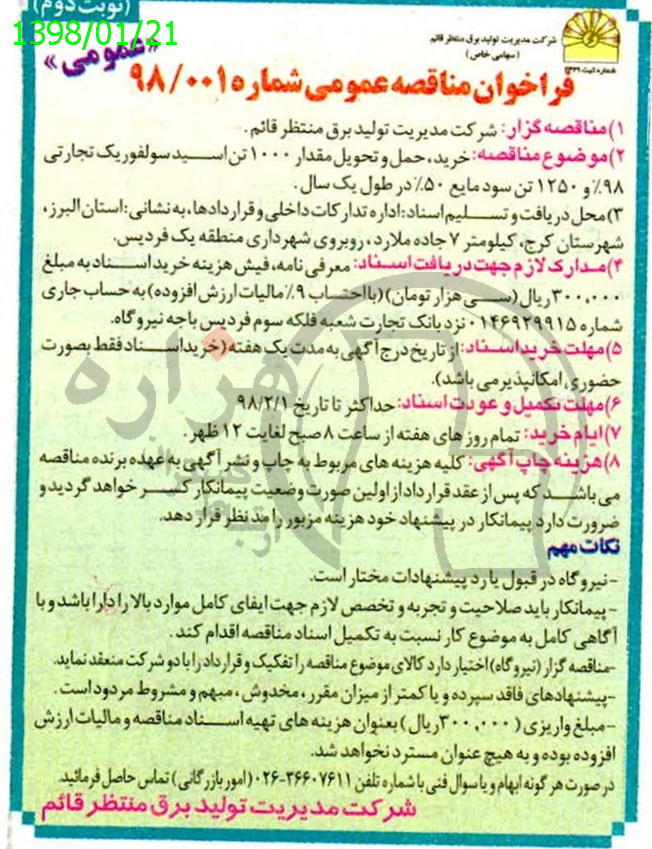 (نوبت دوم)
1398/01/21
شرکت مدیریت تولید برق منتظر قائم
(سهامی خاص)
شماره ثبت ۱۴۲۹
«عمومی»
فراخوان مناقصه عمومی شماره ۹۸/۰۰۱
۱) مناقصه گزار: شرکت مدیریت تولید برق منتظر قائم.
۲) موضوع مناقصه: خرید، حمل و تحویل مقدار ۱۰۰۰ تن اسید سولفوریک تجارتی
۹۸٪ و ۱۲۵۰ تن سود مایع ۵۰٪ در طول یک سال.
۳) محل دریافت و تسلیم اسناد: اداره تدارکات داخلی و قراردادها، به نشانی: استان البرز،
شهرستان کرج، کیلومتر ۷ جاده ملارد، روبروی شهرداری منطقه یک فردیس.
۴) مدارک لازم جهت دریافت اسناد: معرفی نامه، فیش هزینه خرید اسناد به مبلغ
۳۰۰,۰۰۰ ریال (سی هزار تومان) (با احتساب ۹٪ مالیات ارزش افزوده) به حساب جاری
شماره ۰۱۴۶۹۲۹۹۱۵ نزد بانک تجارت شعبه فلکه سوم فردیس باجه نیروگاه.
۵) مهلت خرید اسناد: از تاریخ درج آگهی به مدت یک هفته (خرید اسناد فقط بصورت
حضوری امکانپذیر می باشد).
۶) مهلت تکمیل و عودت اسناد: حداکثر تا تاریخ ۹۸/۲/۱
۷) ایام خرید: تمام روز های هفته از ساعت ۸ صبح لغایت ۱۲ ظهر.
۸) هزینه چاپ آگهی: کلیه هزینه های مربوط به چاپ و نشر آگهی به عهده برنده مناقصه
می باشد که پس از عقد قرارداد از اولین صورت وضعیت پیمانکار کسر خواهد گردید و
ضرورت دارد پیمانکار در پیشنهاد خود هزینه مزبور را مد نظر قرار دهد.
نکات مهم
-نیروگاه در قبول یا رد پیشنهادات مختار است.
-پیمانکار باید صلاحیت و تجربه و تخصص لازم جهت ایفای کامل موارد بالا را دارا باشد و با
آگاهی کامل به موضوع کار نسبت به تکمیل اسناد مناقصه اقدام کند.
-مناقصه گزار (نیروگاه) اختیار دارد کالای موضوع مناقصه را تفکیک و قرارداد را با دو شرکت منعقد نماید.
-پیشنهادهای فاقد سپرده و یا کمتر از میزان مقرر، مخدوش، مبهم و مشروط مردود است.
-مبلغ واریزی (۳۰۰,۰۰۰ ریال) بعنوان هزینه های تهیه اسناد مناقصه و مالیات ارزش
افزوده بوده و به هیچ عنوان مسترد نخواهد شد.
در صورت هر گونه ابهام و یا سوال فنی با شماره تلفن ۳۶۶۰۷۶۱۱-۰۲۶ (امور بازرگانی) تماس حاصل فرمائید.
شرکت مدیریت تولید برق منتظر قائم
هزاره